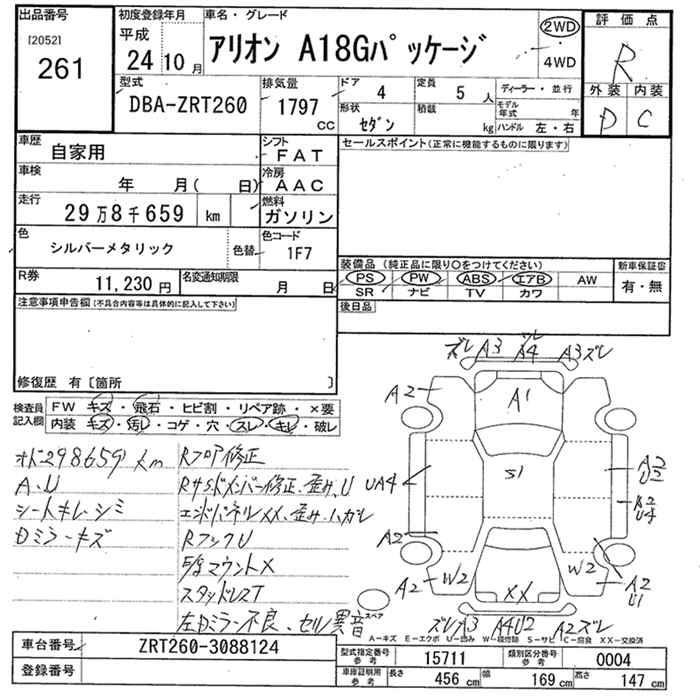 出品番号
[2052]
261
初度登録年月
平成
24 10 月
車名・グレード
アリオン A18Gパッケージ
2WD
4WD
評価点
R
外装 内装
D C
型式
DBA-ZRT260
排気量
1797 cc
ドア
4
形状
セダン
定員
5 人
積載
kg
ディーラー・並行
モデル年式 年
ハンドル 左・右
車歴
自家用
シフト
FAT
車検
年 月( 日)
冷房
AAC
走行
29万8千659 km
燃料
ガソリン
色
シルバーメタリック
色替
色コード
1F7
R券
11,230円
名変通知期限
月 日
セールスポイント(正常に機能するものに限ります)
装備品(純正品に限り○をつけてください)
PS PW ABS エアB AW
SR ナビ TV カワ
新車保証書
有・無
後日品
注意事項申告欄(不具合内容等は具体的に記入して下さい)
修復歴 有〔箇所 〕
検査員記入欄
FW キズ・飛石・ヒビ割・リペア跡・×要
内装 キズ・汚レ・コゲ・穴・スレ・キレ・破レ
オド298659km
A、U
シートキレ・シミ
Dミラーキズ
Rフロア修正
RサSドメンバー修正、歪み、U
エンドパネルXX、歪み、ハガレ
RフックU
マウントX
スタッドレスT
左Dミラー不良、セル異音
ズレ A3 A4 A3 ズレ
A2
A1
S1
UA4
A2
U2
A2
U4
A2
A2
W2
W2
A2
U1
XX
スペア
ズレ A3 A4U2 A2 ズレ
A-キズ E-エクボ U-凹み W-補修跡 S-サビ C-腐食 XX-交換済
車台番号
ZRT260-3088124
登録番号
型式指定番号 参考
15711
類別区分番号 参考
0004
車庫証明用 参考
長さ 456 cm
幅 169 cm
高さ 147 cm